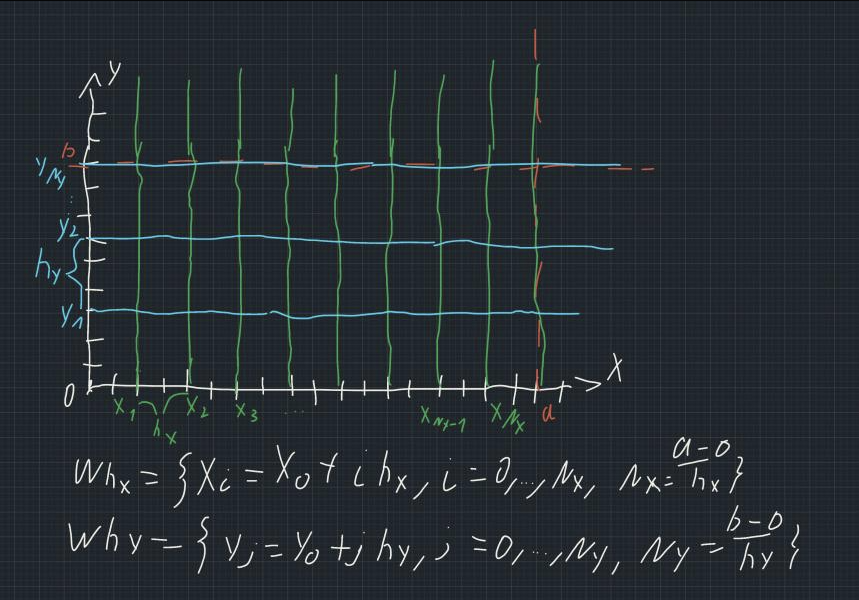 y
b
y_{Ny}
⋮
y_2
h_y
y_1
0
x
x_1 x_2 x_3 ... x_{Nx-1} x_{Nx} a
h_x
Wh_x = {x_i = x_0 + i h_x, i = 0,...,N_x, N_x = \frac{a-0}{h_x}}
Wh_y = {y_j = y_0 + j h_y, j = 0,...,N_y, N_y = \frac{b-0}{h_y}}